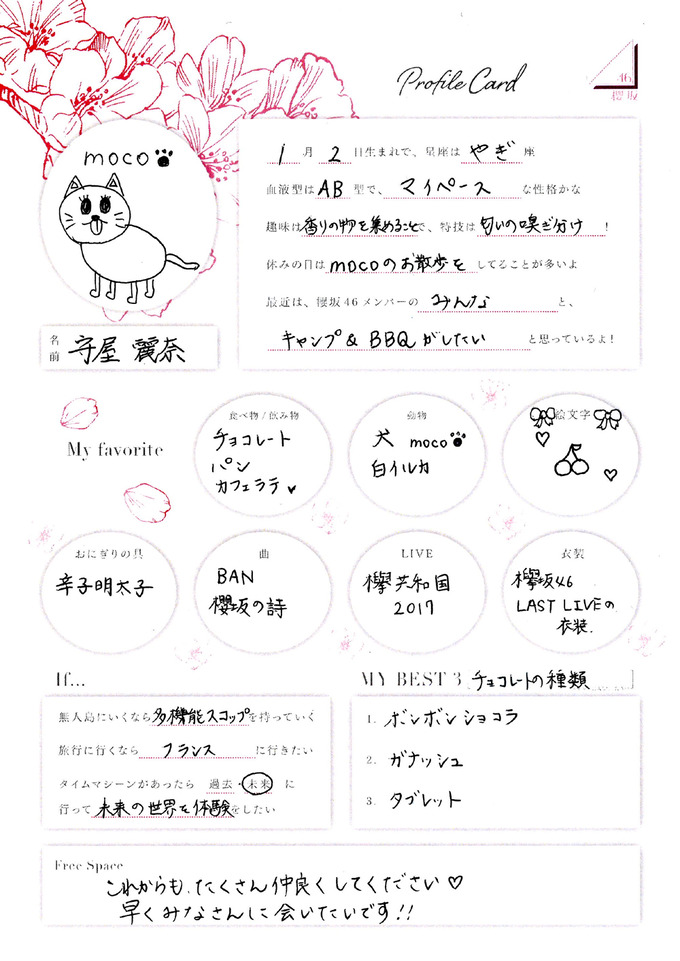 Profile Card
46
櫻坂
moco
名前 守屋 麗奈
1月2日生まれで、星座はやぎ座
血液型はAB型で、マイペースな性格かな
趣味は香りの物を集めることで、特技は匂いの嗅ぎ分け!
休みの日はmocoのお散歩をしてることが多いよ
最近は、櫻坂46メンバーのみんなと、
キャンプ&BBQがしたいと思っているよ!
My favorite
食べ物/飲み物
チョコレート
パン
カフェラテ♥
動物
犬 moco
白イルカ
絵文字
おにぎりの具
辛子明太子
曲
BAN
櫻坂の詩
LIVE
欅共和国
2017
衣装
欅坂46
LAST LIVEの
衣装.
If...
無人島にいくなら多機能スコップを持っていく
旅行に行くならフランスに行きたい
タイムマシーンがあったら 過去・未来 に
行って未来の世界を体験をしたい
MY BEST 3 [チョコレートの種類]
1. ボンボンショコラ
2. ガナッシュ
3. タブレット
Free Space
これからも、たくさん仲良くしてください♡
早くみなさんに会いたいです!!